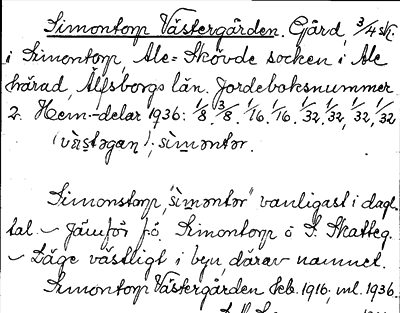 Simontorp Västergården. Gård, 3/4 sk.
i Simontorp, Ale=Skövde socken i Ale
härad, Älfsborgs län. Jordeboksnummer
2. Hem.-delar 1936: 1/8 3/8, 1/16, 1/16. 1/32, 1/32, 1/32, 1/32
Simonstorp, vanligast i dagl.
tal. ~ Jämför fö. Simontorp ö S. Skatteg.
~ Läge västligt i byn, därav namnet.
Simontorp Västergården Feb. 1916, ml. 1936.